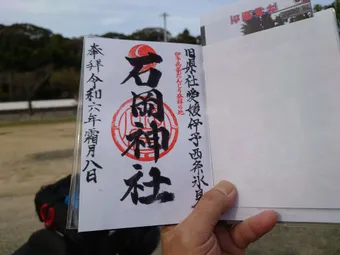 旧県社愛媛伊予西条氷見
石岡神社
奉拝令和六年霜月八日